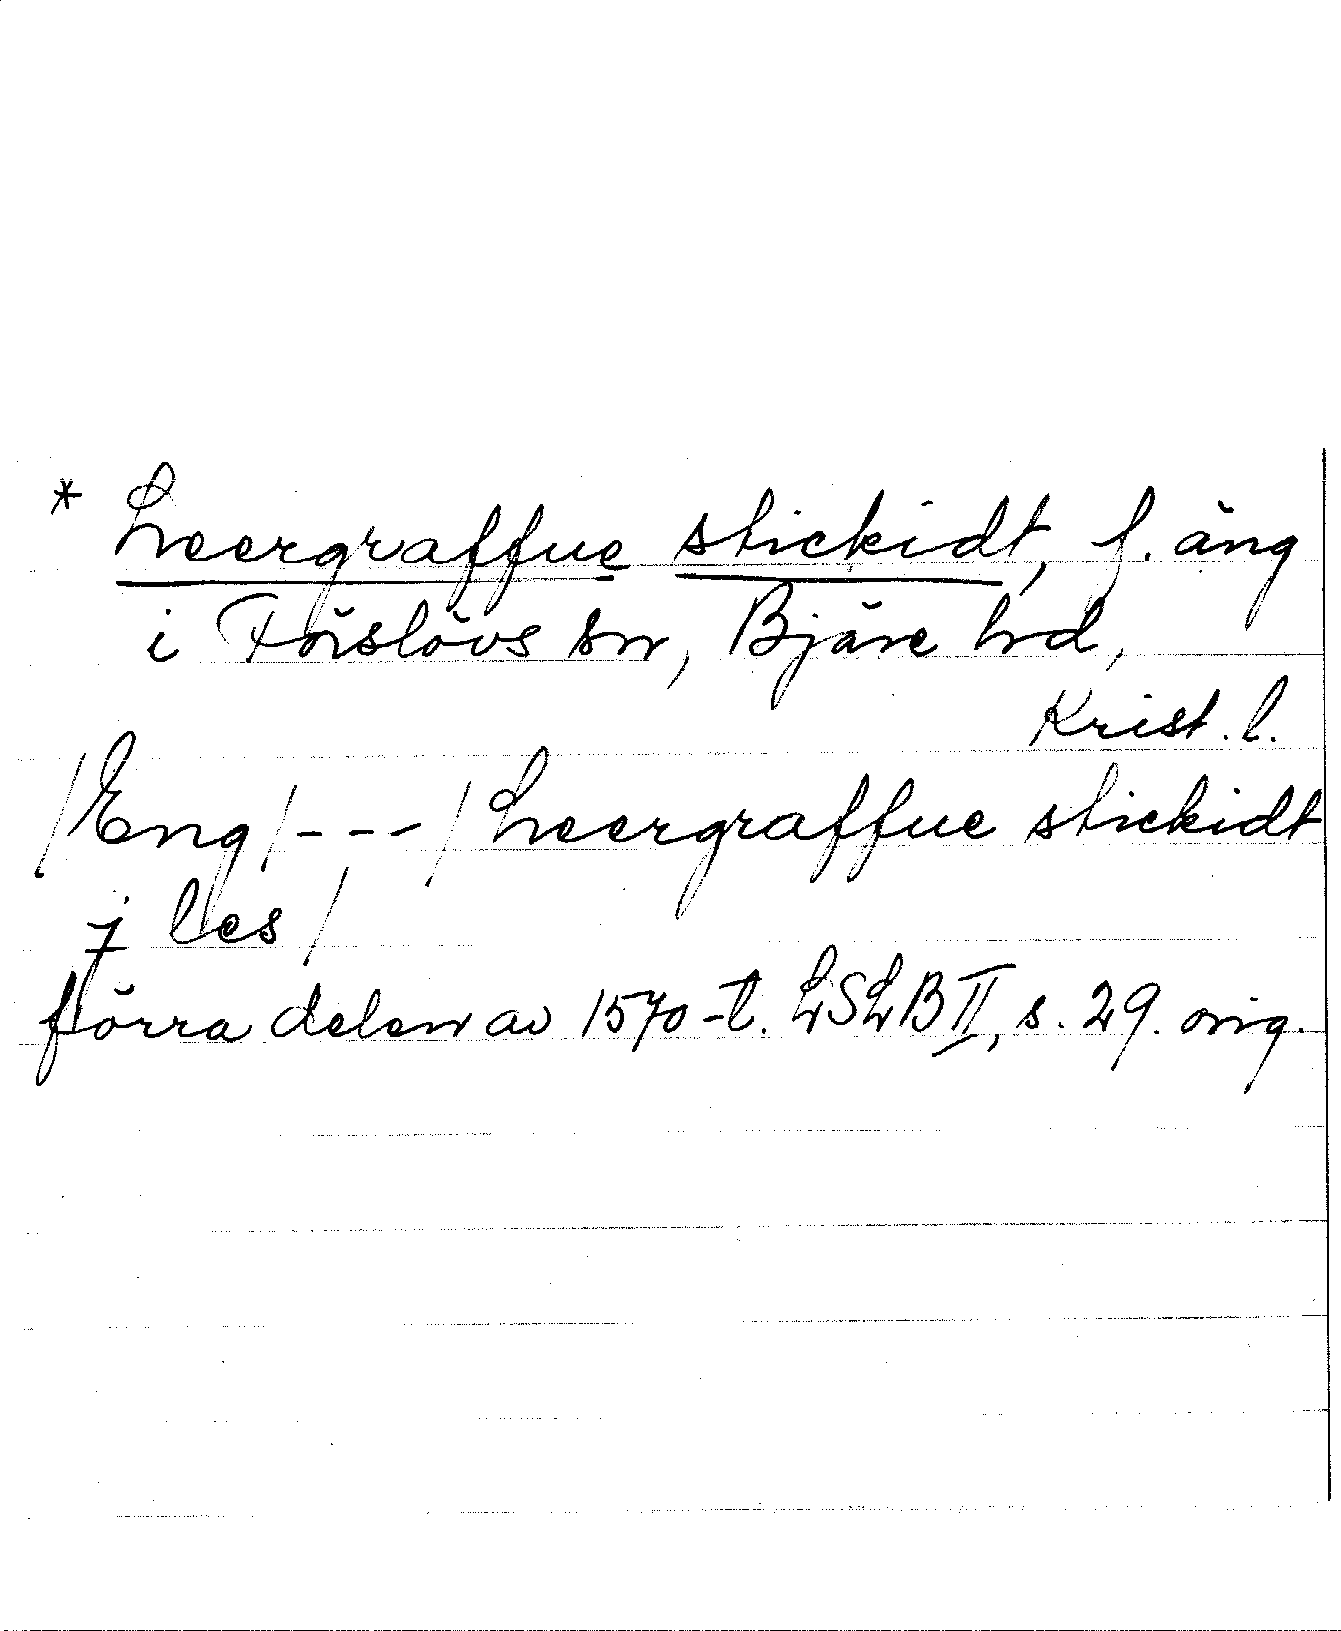 * Leergraffue stickidt, f. äng
i Förslövs sn, Bjäre hd,
Krist. l.
/Eng/---/Leergraffue stickidt
j les/
förra delen av 1570-t. LSLB II, s. 29. orig.